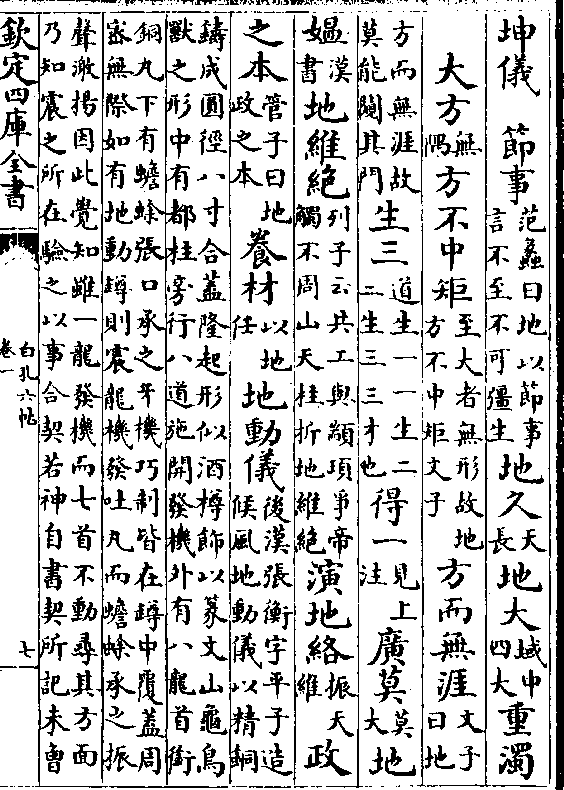 坤儀　節事范蠡曰地以節事言不至不可彊生地久天長地大域中四大重濁
大方無隅方不中矩至大者無形故地方不中矩文子方而無涯文子曰地
方而無涯故莫能闚其門生三道生一一生二二生三三才也得一見上注廣莫莫大地
媪漢書地維絶列子云共工與顓頊爭帝觸不周山天柱折地維絶演地絡振天維政
之本管子曰地政之本養材以地任地動儀後漢張衡字平子造候風地動儀以精銅
鑄成圓徑八寸合蓋隆起形似酒樽飾以篆文山龜鳥
獸之形中有都柱旁行八道施開發機外有八龍首銜
銅丸下有蟾蜍張口承之牙機巧制皆在罇中覆蓋周
密無際如有地動罇則震龍機發吐丸而蟾蜍承之振
聲激揚因此覺知雖一龍發機而七首不動尋其方面
乃知震之所在驗之以事合契若神自書契所記未曾
欽定四庫全書
白孔六帖
卷一
七